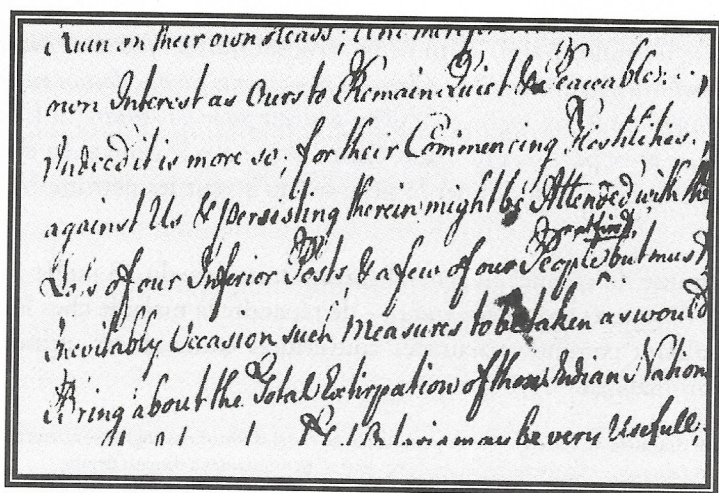 Ruin on their own Heads;
own Interest as Ours to Remain Quiet & Peaceable..
Indeed it is more so, for their Commencing Hostilities.
against Us & persisting therein might be Attended with the
at first,
Loss of our Inferior Posts, & a few of our People ^ but must
Inevitably Occasion such Measures to be taken as would
Bring about the Total Extirpation of those Indian Nation
may be very Usefull;